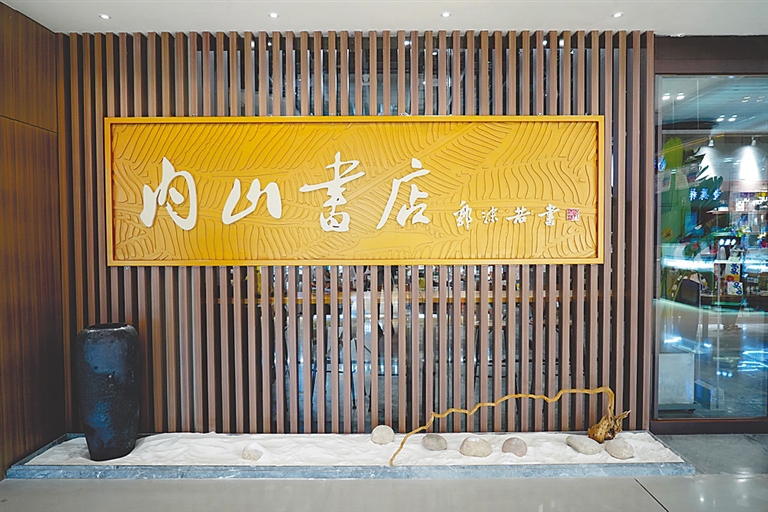 内山書店 郭沫若書